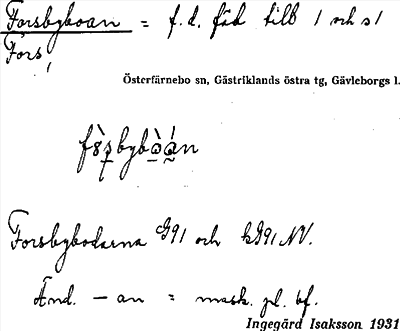 Forsbyboan = f. d. fäb till 1 och s1
Fors,
Österfärnebo sn, Gästriklands östra tg, Gävleborgs l.
Forsbybodarna G91 och NV.
Änd. – an = mask. pl. bf.
Ingegärd Isaksson 1931